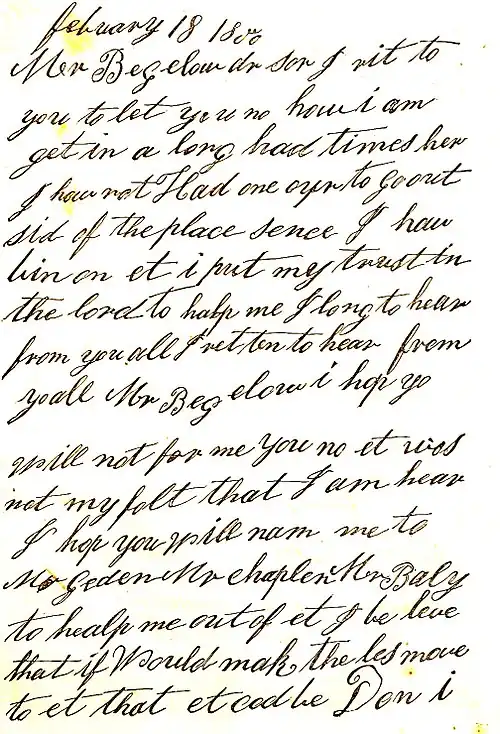 february 18 18
Mr Begelow dr sor I rit to
you to let you no how i am
get in a long had times her
I haw not Had one oyr to go out
sid of the place sence I haw
bin on et i put my trust in
the lord to halp me I long to hear
from you all I ret ten to hear from
yo all Mr Begelow i hop yo
will not for me you no et was
not my folt that I am hear
I hop you will nam me to
Mr Geden Mr chaplen Mr Baly
to healp me out of et I be leve
that if Would mak the les move
to et that et cod be Don i